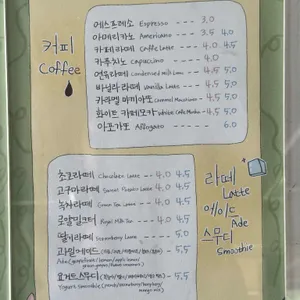 커피
Coffee
에스프레소 Espresso --- 3.0
아메리카노 Americano --- 3.5 4.0
카페라떼 Caffe Latte --- 4.0 4.5
카푸치노 Capuccino --- 4.0
연유라떼 Condensed milk Latte --- 4.5 5.0
바닐라라떼 Vanilla Latte --- 4.5 5.0
카라멜 마끼아또 Caramel Macchiato --- 4.5 5.0
화이트 카페모카 White Cafe Mocha --- 4.5 5.0
아포가또 Affogato --- 6.0
라떼
Latte
에이드
Ade
스무디
Smoothie
초코라떼 Chocolate Latte --- 4.0 4.5
고구마라떼 Sweet Potato Latte --- 4.0 4.5
녹차라떼 Green Tea Latte --- 4.0 4.5
로얄밀크티 Royal Milk Tea --- 4.0 4.5
딸기라떼 Strawberry Latte --- 5.0
과일에이드 --- 5.5
요거트스무디 --- 5.5
Yogurt Smoothie